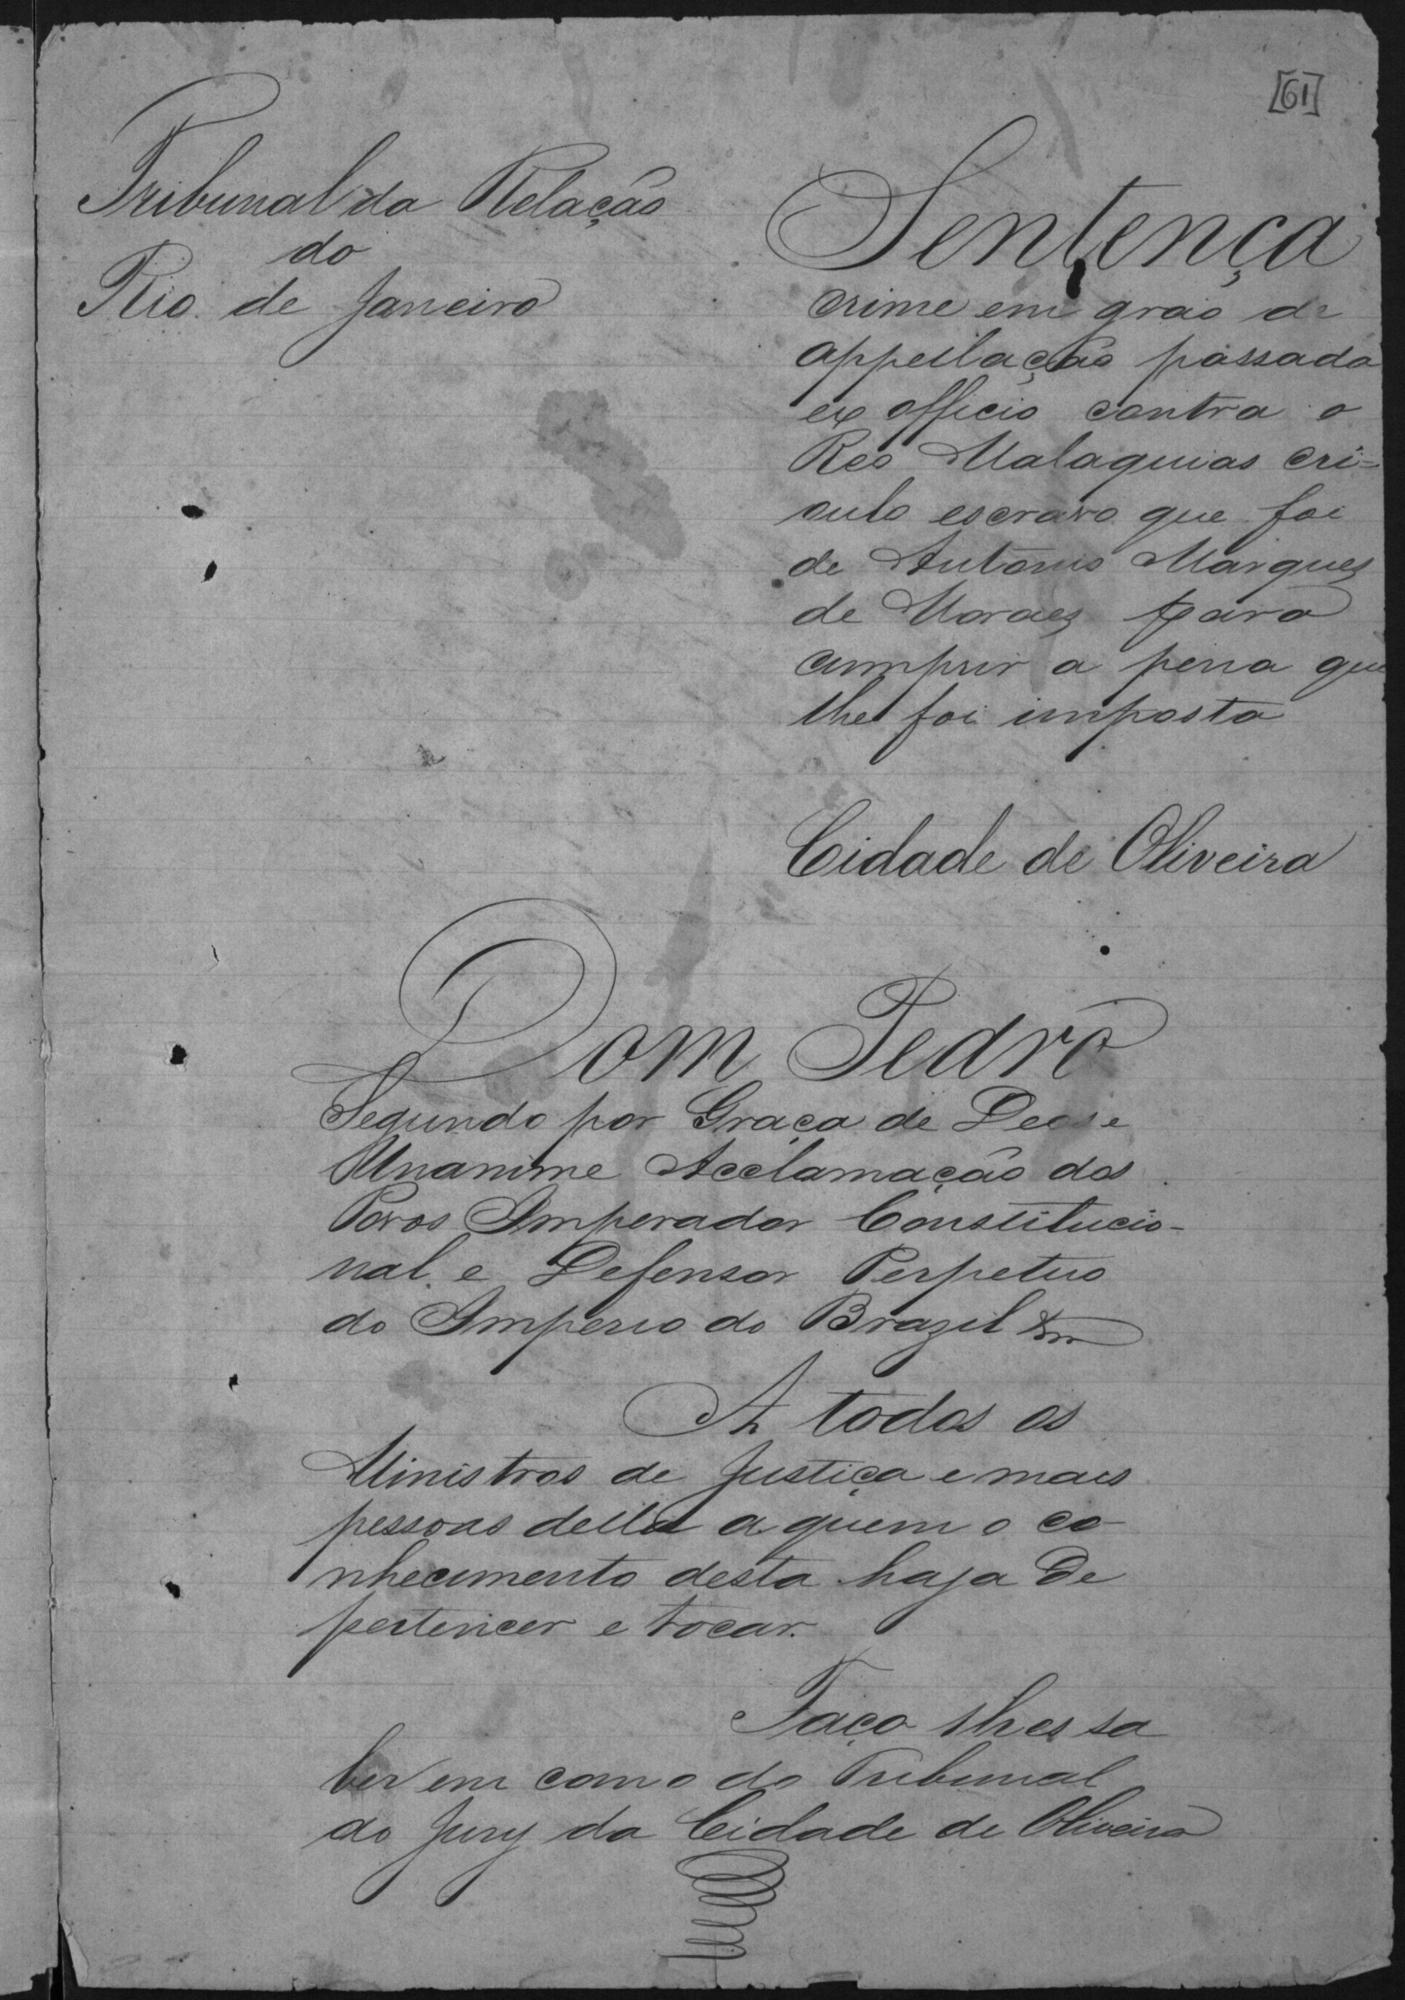 [61]
Tribunal da Relação
do
Rio de Janeiro
Sentença
crime em gráo de
appellação passada
ex officio contra o
Reo Malaquias cri=
oulo escravo que foi
de Antonio Marques
de Moraes para
cumprir a pena que
lhe foi imposta
Cidade de Oliveira
Dom Pedro
Segundo por Graça de Deos e
Unanime Acclamação dos
Povos Imperador Constitucio-
nal e Defensor Perpetuo
do Imperio do Brazil &
A todos os
Ministros de Justiça e mais
pessoas della a quem o co-
nhecimento desta haja de
pertencer e tocar.
Faço lhes sa
ber em como do Tribunal
do Jury da Cidade de Oliveira